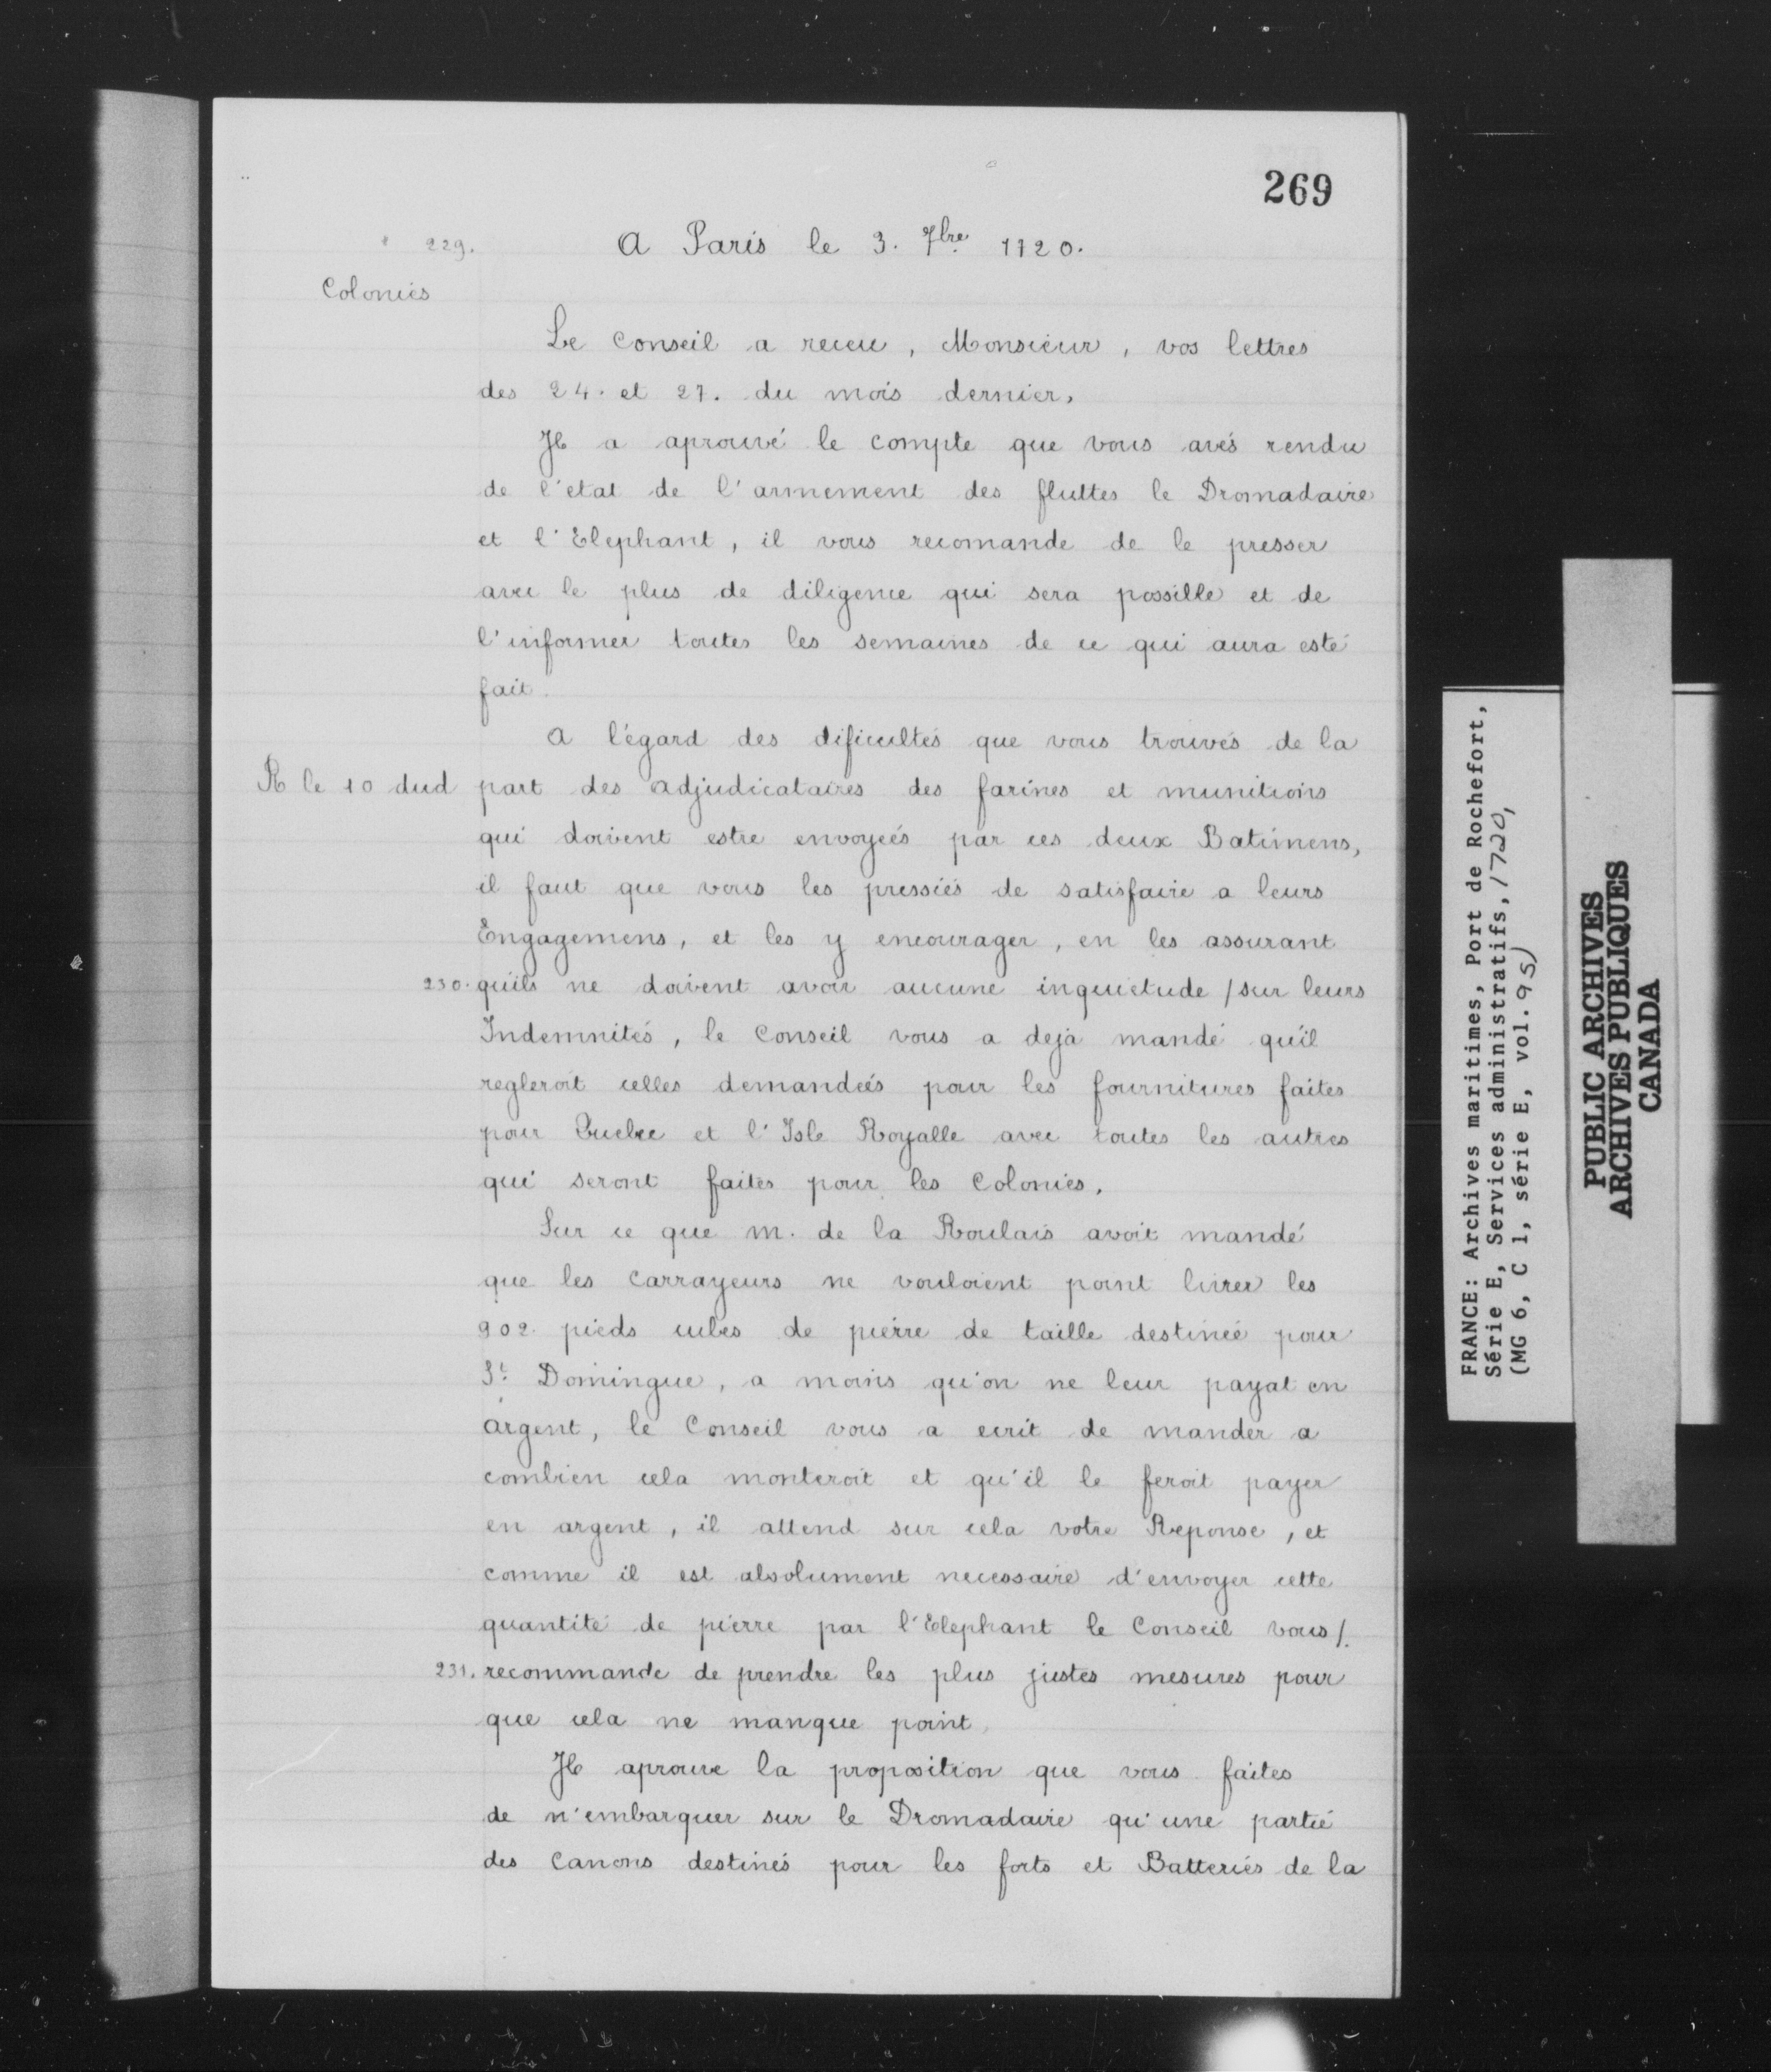 269
229. A Paris le 3. 7bre 1720.
Colonies
Le Conseil a receu, Monsieur, vos lettres
des 24. et 27. du mois dernier,
Il a aprouvé le compte que vous avés rendu
de l'etat de l'armement des fluttes le Dromadaire
et l'Elephant, il vous recomande de le presser
avec le plus de diligence qui sera possille et de
l'informer toutes les semaines de ce qui aura esté
fait.
A l'égard des dificultés que vous trouvés de la
R le 10 dud part des adjudicataires des farines et munitions
qui doivent estre envoyeés par ces deux Batimens,
il faut que vous les pressiés de satisfaire a leurs
Engagemens, et les y encourager, en les assurant
230. quils ne doivent avoir aucune inquietude / sur leurs
Indemnités, le Conseil vous a deja mandé qu'il
regleroit celles demandeés pour les fournitures faites
pour Quebec et l'Isle Royalle avec toutes les autres
qui seront faites pour les Colonies.
Sur ce que M. de la Roulais avoit mandé
que les Carrayeurs ne vouloient point livrer les
902. pieds cubes de pierre de taille destineé pour
St Domingue, a moins qu'on ne leur payat en
argent, le Conseil vous a ecrit de mander a
combien cela monteroit et qu'il le feroit payer
en argent, il attend sur cela votre Reponse, et
comme il est absolument necessaire d'envoyer cette
quantité de pierre par l'Elephant le Conseil vous /.
231. recommande de prendre les plus justes mesures pour
que cela ne manque point,
Il aprouve la proposition que vous faites
de n'embarquer sur le Dromadaire qu'une partie
des Canons destinés pour les forts et Batteries de la
FRANCE: Archives maritimes, Port de Rochefort,
Série E, Services administratifs, 1720,
(MG 6, C 1, série E, vol. 95)
PUBLIC ARCHIVES
ARCHIVES PUBLIQUES
CANADA